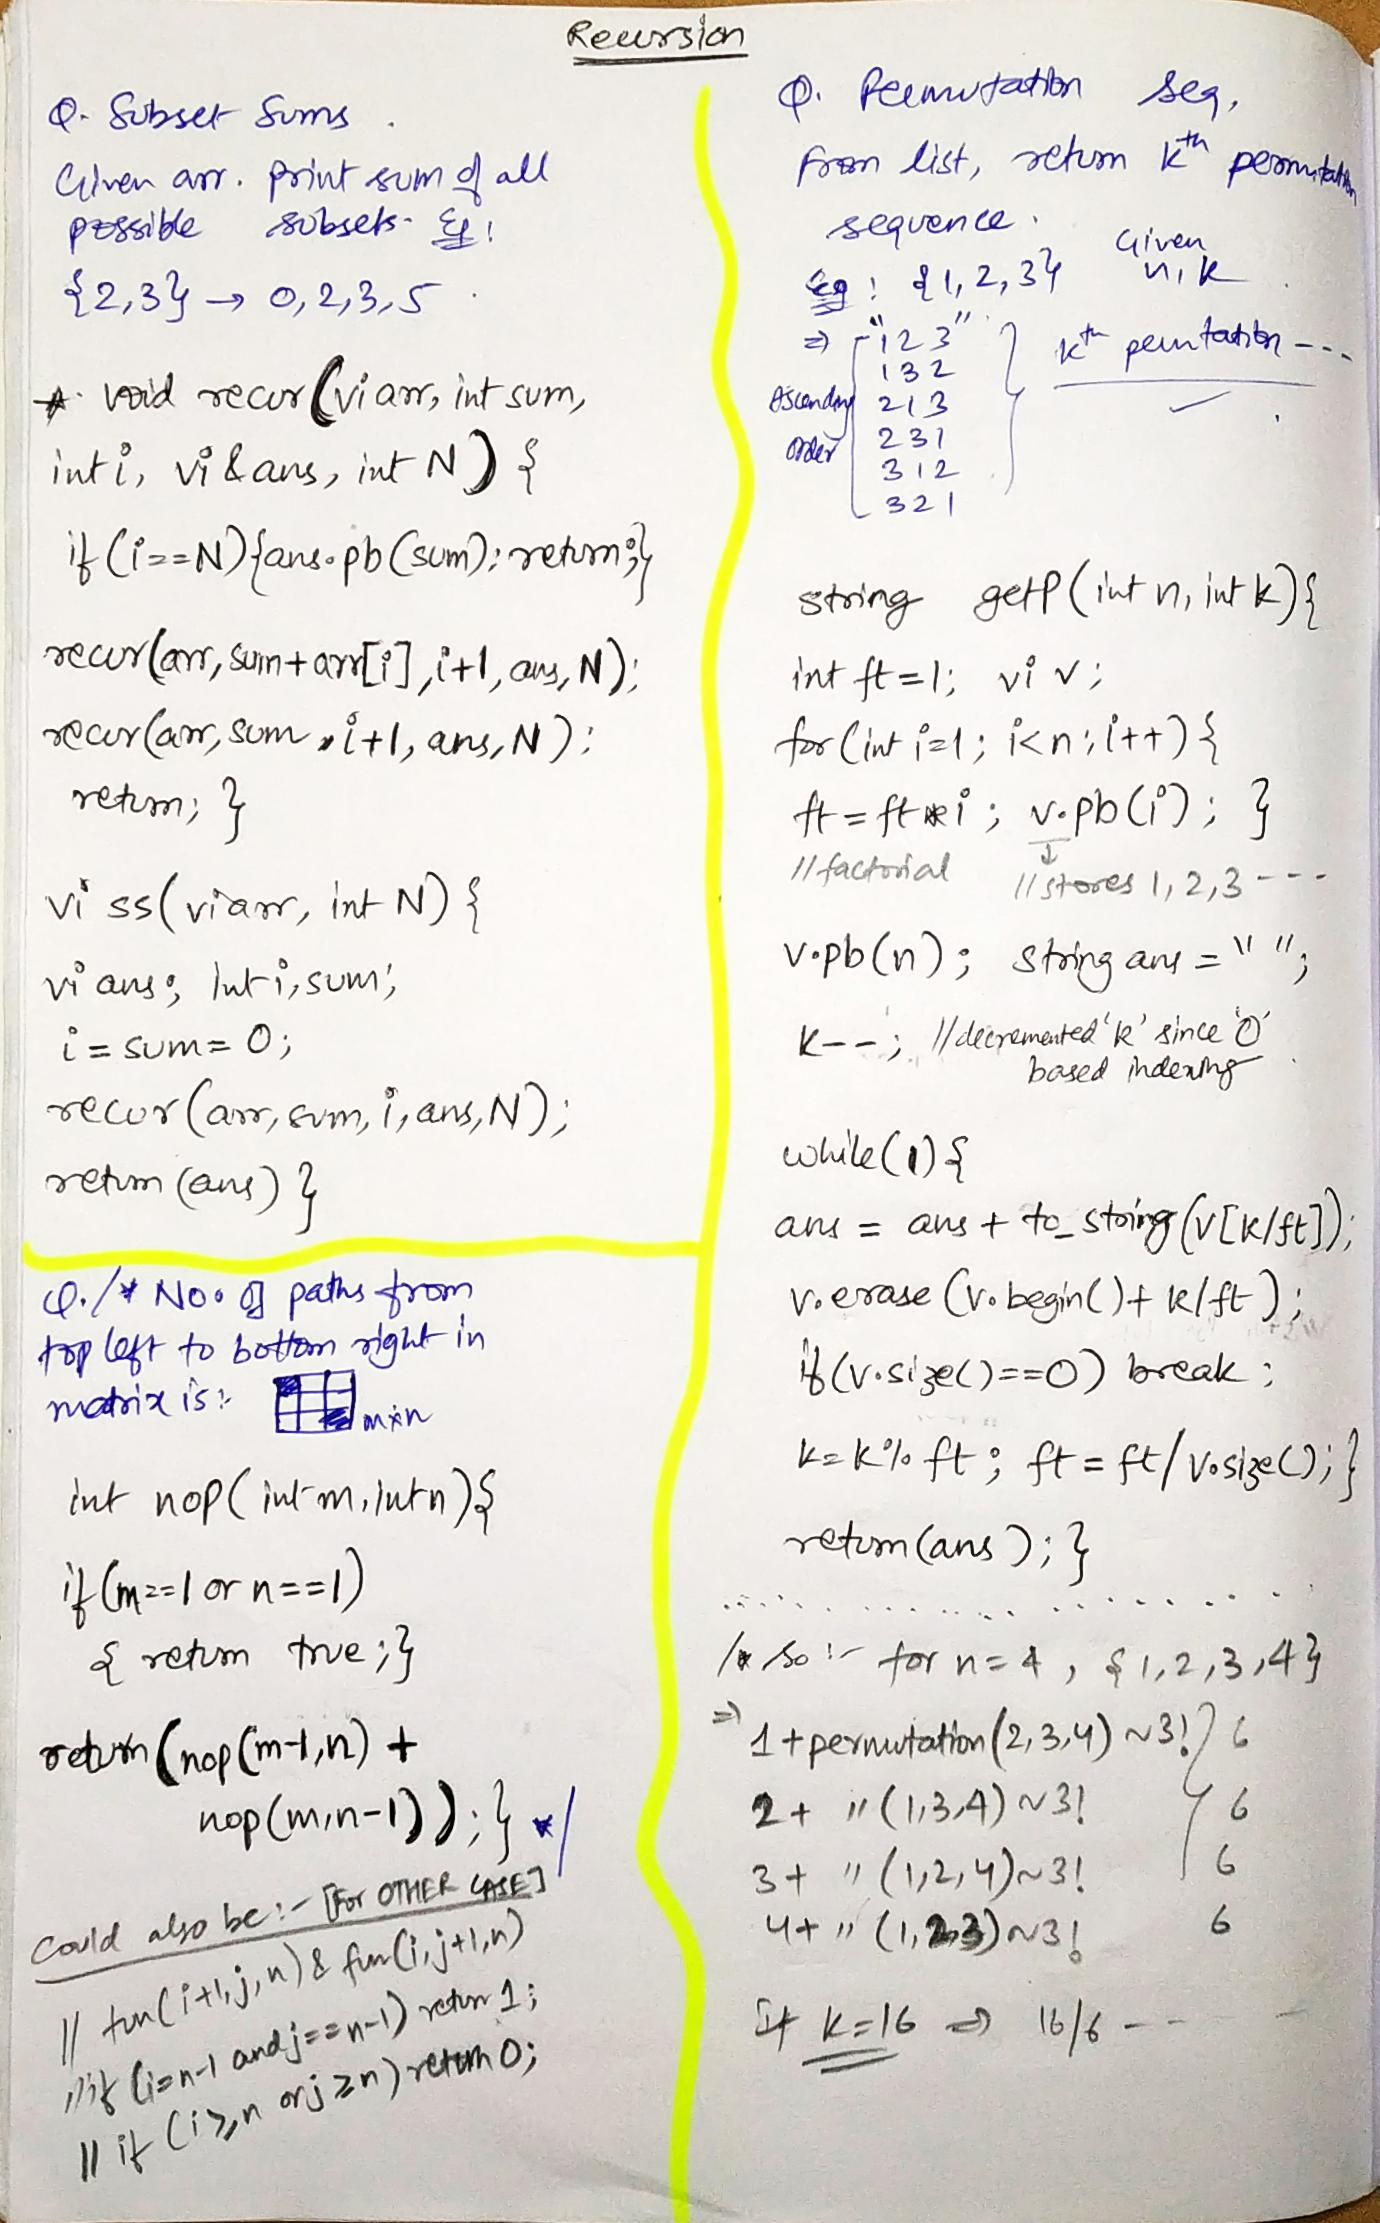 Recursion
Q. Subset Sums.
Given arr. print sum of all
possible subsets. Eg:
{2,3} → 0,2,3,5.
*. void recur(vi arr, int sum,
int i, vi &ans, int N) {
if (i==N){ans.pb(sum); return;}
recur(arr, sum+arr[i], i+1, ans, N);
recur(arr, sum, i+1, ans, N);
return; }
vi ss(vi arr, int N) {
vi ans; int i, sum;
i = sum = 0;
recur(arr, sum, i, ans, N);
return (ans) }
Q. /* No. of paths from
top left to bottom right in
matrix is:-
m×n
int nop(int m, int n){
if (m==1 or n==1)
{ return true; }
return (nop(m-1,n) +
nop(m,n-1)); } */
Could also be:- [For OTHER CASE]
// fun(i+1,j,n) & fun(i,j+1,n)
// if (i=n-1 and j==n-1) return 1;
// if (i≥n or j≥n) return 0;
Q. Permutation Seq,
from list, return kth permutation
sequence.
Given
Eg: {1,2,3} n,k.
⇒ "123" kth permutation ---
132
Ascending 213
order 231
312
321
string getP(int n, int k){
int ft=1; vi v;
for(int i=1; i<n; i++){
ft = ft*i; v.pb(i); }
// factorial ↓ // stores 1,2,3 ---
v.pb(n); string ans = "";
k--; // decremented 'k' since '0'
based indexing.
while(1){
ans = ans + to_string(v[k/ft]);
v.erase(v.begin()+k/ft);
if(v.size()==0) break;
k=k%ft; ft = ft/v.size();}
return(ans);}
/* So:- for n=4, {1,2,3,4}
⇒ 1+permutation(2,3,4) ~3! } 6
2+ " (1,3,4) ~3! 6
3+ " (1,2,4) ~3! 6
4+ " (1,2,3) ~3! 6
If k=16 ⇒ 16/6 ---